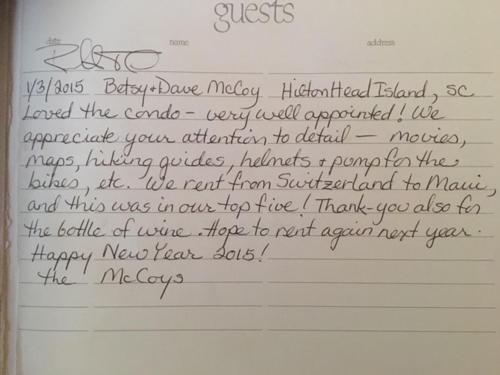 guests
date name address
1/3/2015 Betsy + Dave McCoy Hilton Head Island, SC
Loved the condo - very well appointed! We
appreciate your attention to detail — movies,
maps, hiking guides, helmets + pump for the
bikes, etc. We rent from Switzerland to Maui,
and this was in our top five! Thank-you also for
the bottle of wine. Hope to rent again next year.
Happy New Year 2015!
the McCoys